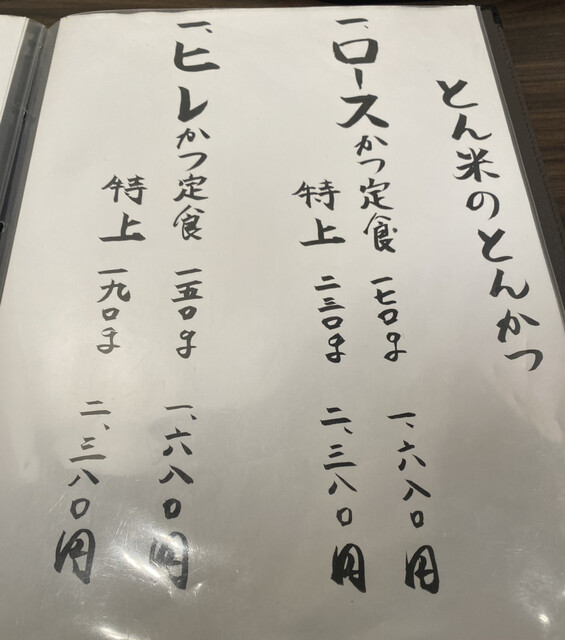 とん米のとんかつ
一、ロースかつ定食 一七〇g 一、六八〇円
特上 二三〇g 二、三八〇円
一、ヒレかつ定食 一五〇g 一、六八〇円
特上 一九〇g 二、三八〇円